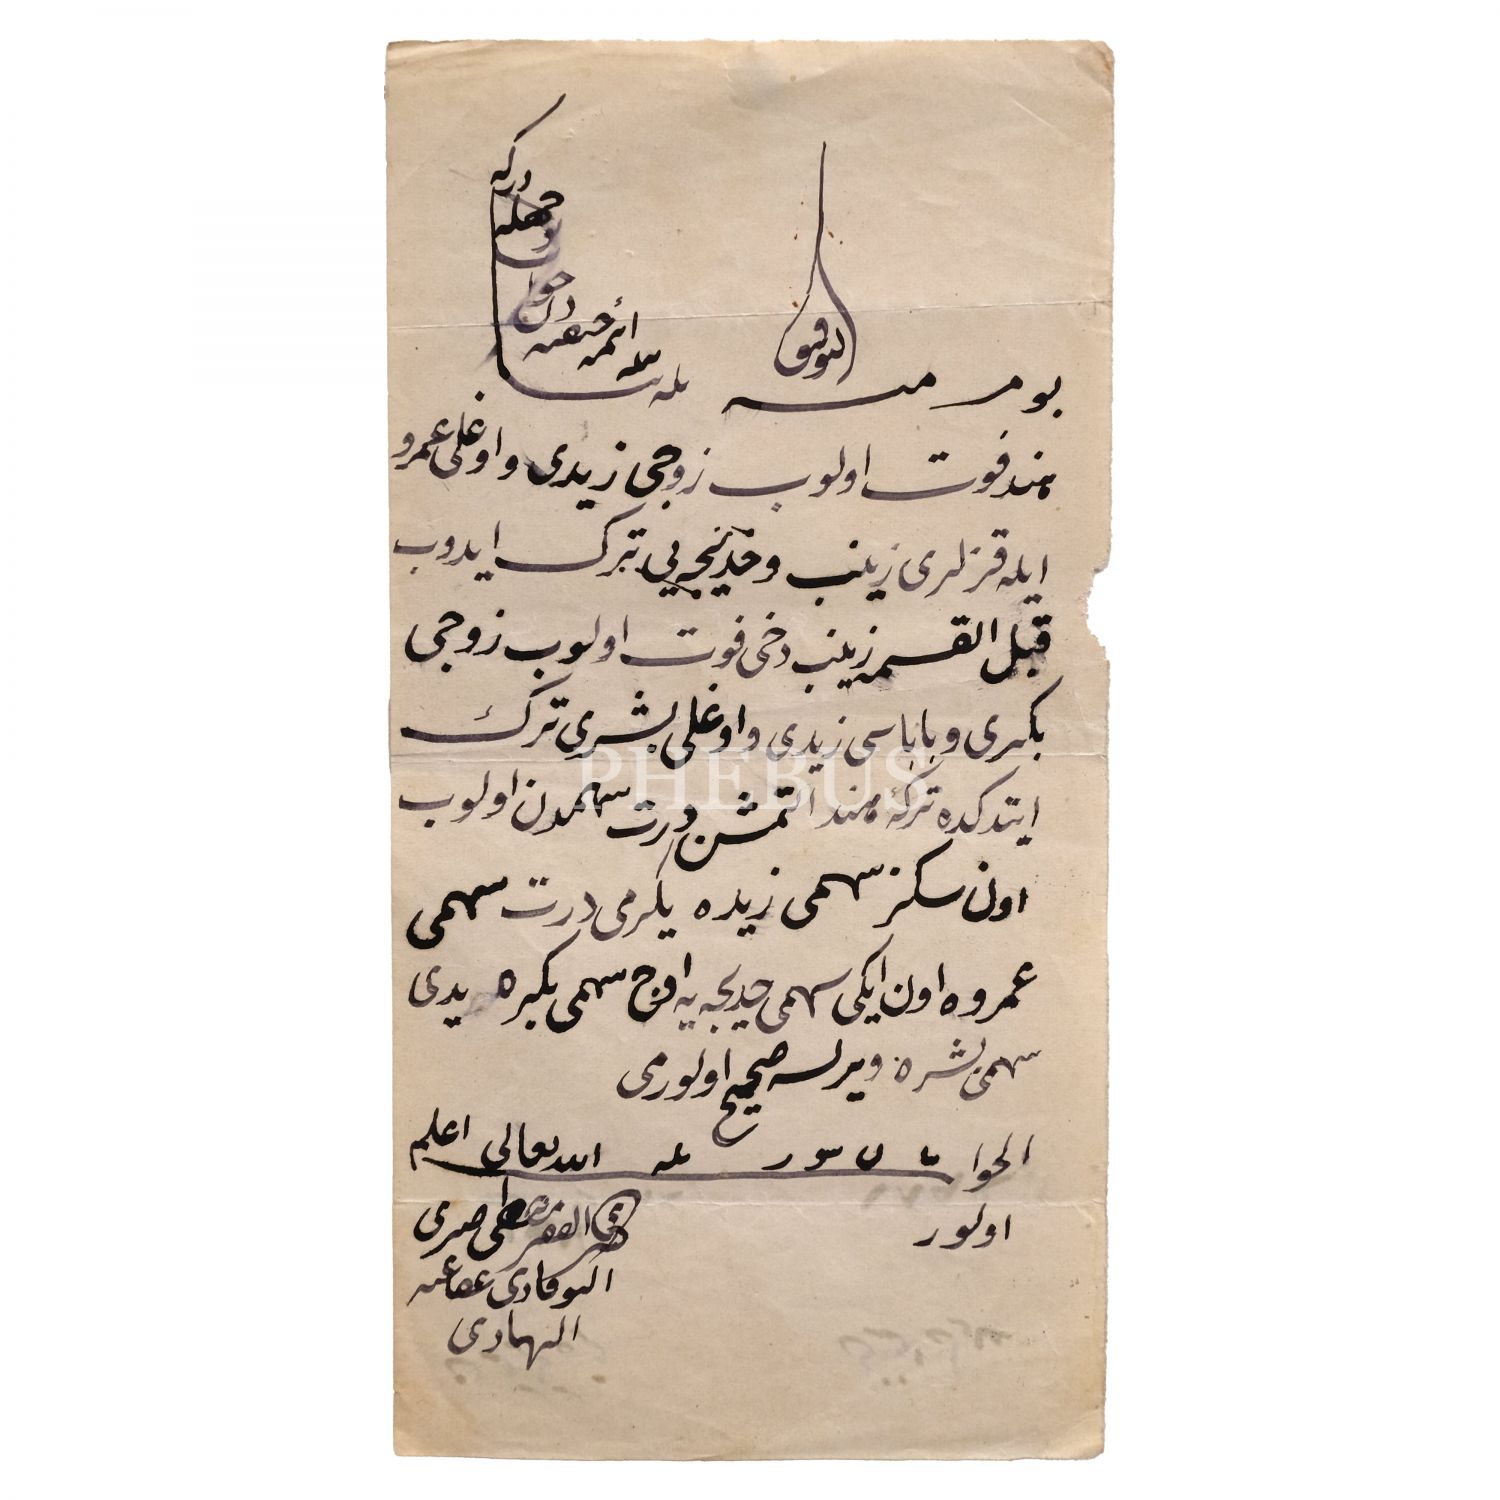 التوفيق
بو مسئله بیاننده ائمهٔ حنفیه دن جواب نوجهله دركه
هند فوت اولوب زوجی زیدی و اوغلی عمرو
ایله قزلری زینب و خدیجه یی ترك ایدوب
قبل القسمه زینب دخی فوت اولوب زوجی
بكری و باباسی زیدی و اوغلی بشری ترك
ایتدكده تركهٔ هند التمش درت سهمدن اولوب
اون سكز سهمی زیده یكرمی درت سهمی
عمروه اون ایكی سهمی خدیجه یه اوچ سهمی بكره یدی
سهمی بشره ویرلسه صحیح اولورمی
الجواب الله تعالی اعلم
اولور
الفقیر مصطفی صبری
التوقادی عفا عنه
الهادی
PHEBUS